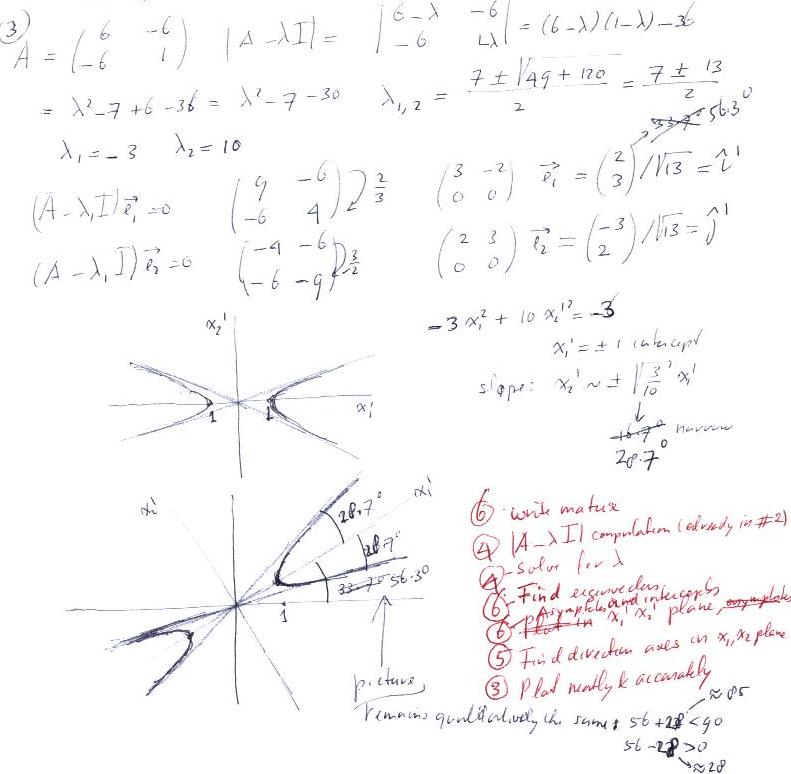 ③
A = ( 6 -6 ; -6 1 )   |A - λI| = | 6-λ -6 ; -6 1-λ | = (6-λ)(1-λ) - 36
= λ² - 7 + 6 - 36 = λ² - 7 - 30   λ₁,₂ = (7 ± √(49 + 120)) / 2 = (7 ± 13) / 2
λ₁ = -3   λ₂ = 10
33.7° 56.3°
(A - λ₁I) e⃗₁ = 0   ( 9 -6 ; -6 4 ) 2/3   ( 3 -2 ; 0 0 )   e⃗₁ = ( 2 ; 3 ) / √13 = î'
(A - λ₁I) e⃗₂ = 0   ( -4 -6 ; -6 -9 ) 3/-2   ( 2 3 ; 0 0 )   e⃗₂ = ( -3 ; 2 ) / √13 = ĵ'
-3 x₁² + 10 x₂'² = -3
x₁' = ± 1 intercept
slope: x₂' ~ ± √(3/10) x₁'
16.7° narrow
28.7°
x₂'
x₁'
1 1
x₂'
x₁'
28.7°
28.7°
33.7° 56.3°
1
picture
remains qualitatively the same: 56 + 28 < 90
≈ 85
56 - 28 > 0
≈ 28
⑥ write matrix
④ |A - λI| computation (already in #2)
④ - solve for λ
⑥ - Find eigenvectors
⑥ - Asymptotes and intercepts in x₁' x₂' plane, asymptotes
⑤ Find direction axes in x₁, x₂ plane
③ Plot neatly & accurately